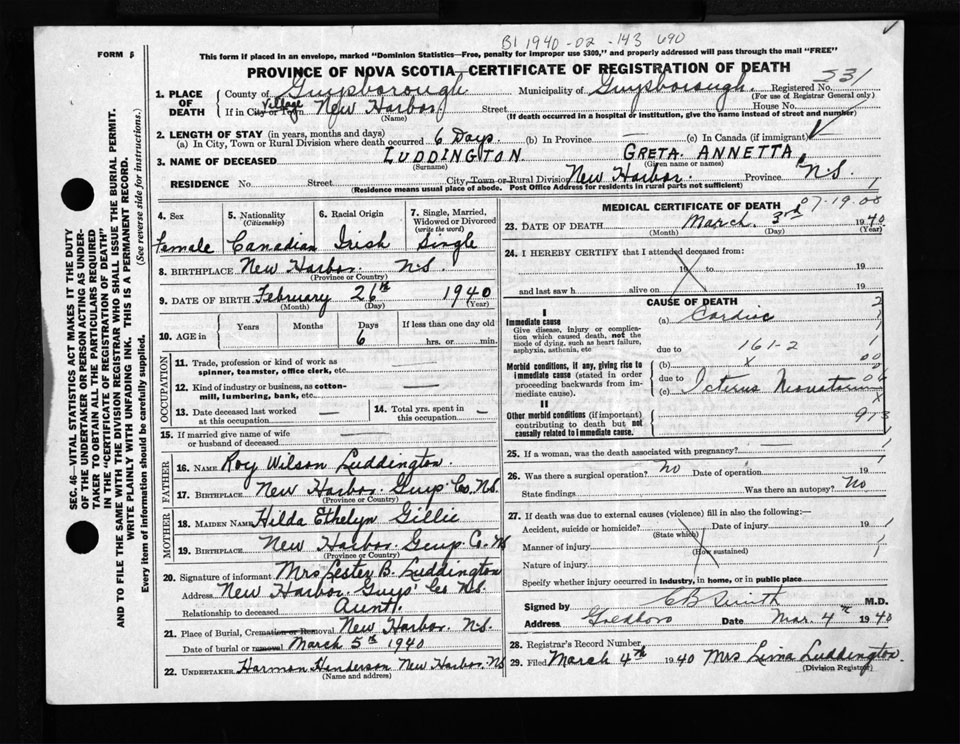 B1 1940-02-143 690
FORM 5
This form if placed in an envelope, marked "Dominion Statistics—Free, penalty for improper use $300," and properly addressed will pass through the mail "FREE"
PROVINCE OF NOVA SCOTIA—CERTIFICATE OF REGISTRATION OF DEATH
SEC. 46—VITAL STATISTICS ACT MAKES IT THE DUTY
OF THE UNDERTAKER OR PERSON ACTING AS UNDER-
TAKER TO OBTAIN ALL THE PARTICULARS REQUIRED
IN THE "CERTIFICATE OF REGISTRATION OF DEATH"
AND TO FILE THE SAME WITH THE DIVISION REGISTRAR WHO SHALL ISSUE THE BURIAL PERMIT.
WRITE PLAINLY WITH UNFADING INK. THIS IS A PERMANENT RECORD.
Every item of information should be carefully supplied. (See reverse side for instructions.)
1. PLACE OF DEATH County of Guysborough Municipality of Guysborough Registered No. 531
(For use of Registrar General only)
If in City or Town Village New Harbor Street House No.
(Name) (If death occurred in a hospital or institution, give the name instead of street and number)
2. LENGTH OF STAY (in years, months and days)
(a) In City, Town or Rural Division where death occurred 6 Days (b) In Province — (c) In Canada (if immigrant)
3. NAME OF DECEASED LUDDINGTON GRETA ANNETTA
(Surname) (Given name or names)
RESIDENCE No. Street City, Town or Rural Division New Harbor Province N.S.
(Residence means usual place of abode. Post Office Address for residents in rural parts not sufficient) 1
4. Sex 5. Nationality (Citizenship) 6. Racial Origin 7. Single, Married, Widowed or Divorced (write the word)
Female Canadian Irish Single
8. BIRTHPLACE New Harbor N.S.
(Province or Country)
9. DATE OF BIRTH February 26th 1940
(Month) (Day) (Year)
10. AGE in Years Months Days If less than one day old
6 hrs. or min.
OCCUPATION
11. Trade, profession or kind of work as
spinner, teamster, office clerk, etc. —
12. Kind of industry or business, as cotton-
mill, lumbering, bank, etc. —
13. Date deceased last worked at this occupation — 14. Total yrs. spent in this occupation —
15. If married give name of wife
or husband of deceased —
FATHER
16. NAME Roy Wilson Luddington
17. BIRTHPLACE New Harbor Guys Co. N.S.
(Province or Country)
MOTHER
18. MAIDEN NAME Hilda Ethelyn Gillie
19. BIRTHPLACE New Harbor Guys. Co. N.S
(Province or Country)
20. Signature of informant Mrs Lester B. Luddington
Address New Harbor Guys Co N.S.
Relationship to deceased Aunt.
21. Place of Burial, Cremation or Removal New Harbor N.S.
Date of burial or removal March 5th 1940
22. UNDERTAKER Harmon Henderson New Harbor N.S
(Name and address)
MEDICAL CERTIFICATE OF DEATH 07-19-08
23. DATE OF DEATH March 3rd 1940
(Month) (Day) (Year)
24. I HEREBY CERTIFY that I attended deceased from:
19 to 19
and last saw h alive on 19
CAUSE OF DEATH
I
Immediate cause (a) Cardiac
Give disease, injury or complica-
tion which caused death, not the
mode of dying, such as heart failure,
asphyxia, asthenia, etc due to 161-2
Morbid conditions, if any, giving rise to
immediate cause (stated in order
proceeding backwards from im-
mediate cause). (b) x
due to
(c) Icterus Neonatorum
II
Other morbid conditions (if important)
contributing to death but not
causally related to immediate cause.
913
25. If a woman, was the death associated with pregnancy? — 1
26. Was there a surgical operation? No Date of operation 19
State findings Was there an autopsy? No
27. If death was due to external causes (violence) fill in also the following:—
Accident, suicide or homicide? Date of injury 19
(State which)
Manner of injury
(How sustained)
Nature of injury
Specify whether injury occurred in industry, in home, or in public place
Signed by CB Smith M.D.
Address Goldboro Date Mar. 4th 1940
28. Registrar's Record Number
29. Filed March 4th 1940 Mrs Lima Luddington
(Division Registrar)